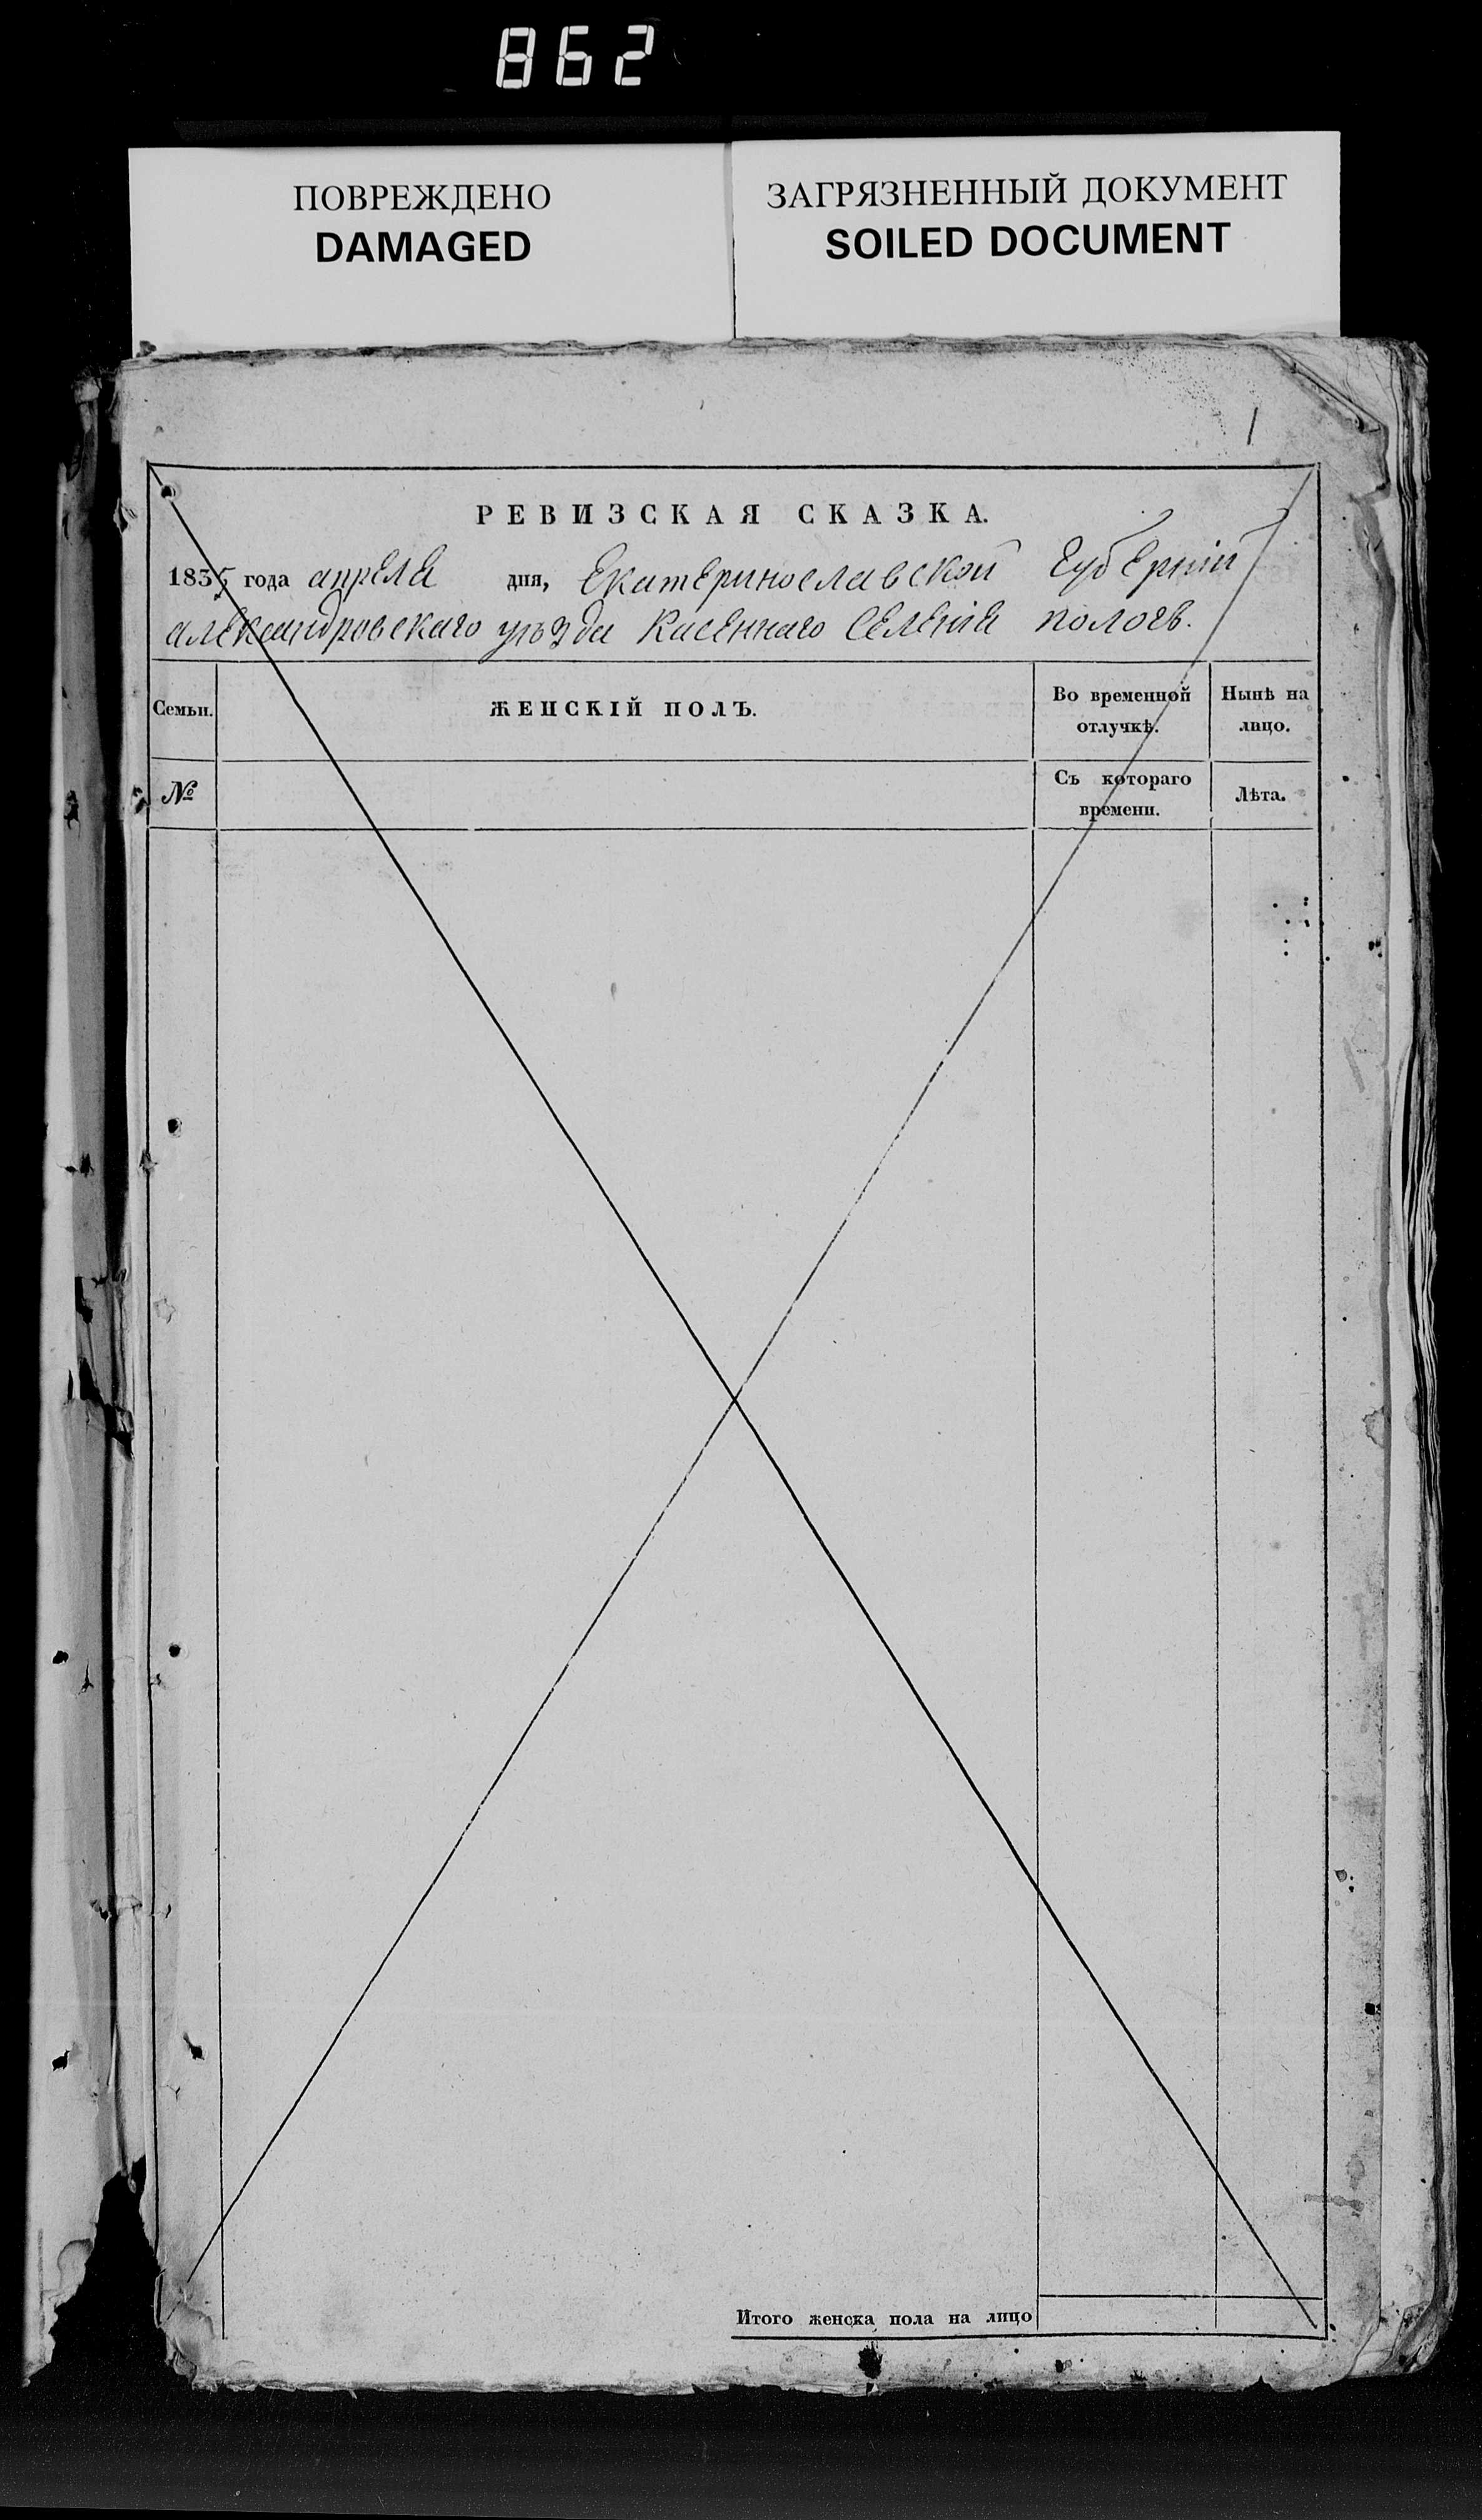 862
ПОВРЕЖДЕНО
DAMAGED
ЗАГРЯЗНЕННЫЙ ДОКУМЕНТ
SOILED DOCUMENT
1
РЕВИЗСКАЯ СКАЗКА.
1835 года апреля дня, Екатеринославской Губерніи
александровскаго уѣзда Касеннаго Селенія пологъ.
Семьи.
ЖЕНСКІЙ ПОЛЪ.
Во временной
отлучкѣ.
Нынѣ на
лицо.
№
Съ котораго
времени.
Лѣта.
Итого женска пола на лицо